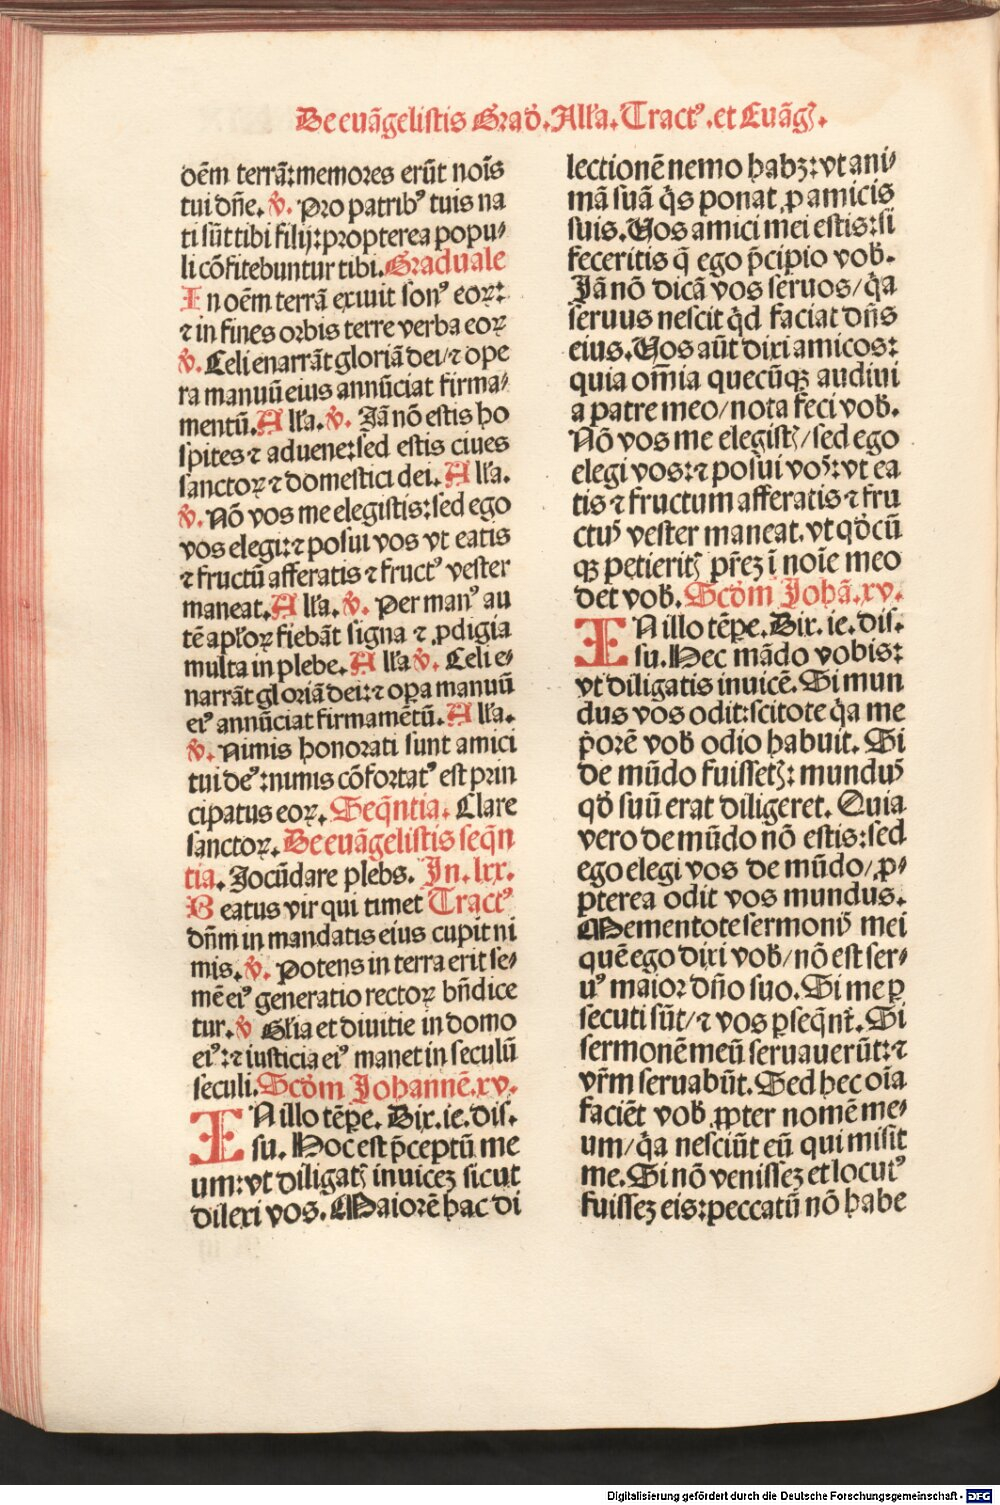 De euāgelistis Grad̛. All'a. Tract⁹. et Euāgꝫ.
oēm terrā: memores erūt noīs
tui dn̄e. v̛. Pro patrib⁹ tuis na
ti sūt tibi filij: propterea popu⸗
li cōfitebuntur tibi. Graduale
In oēm terrā exiuit son⁹ eoꝝ:
⁊ in fines orbis terre verba eoꝝ
v̛. Celi enarrāt gloriā dei/ ⁊ ope
ra manuū eius annūciat firma⸗
mentū. All'a. v̛. Jā nō estis ho
spites ⁊ aduene: sed estis ciues
sanctoꝝ ⁊ domestici dei. All'a.
v̛. Nō vos me elegistis: sed ego
vos elegi: ⁊ posui vos vt eatis
⁊ fructū afferatis ⁊ fruct⁹ vester
maneat. All'a. v̛. Per man⁹ au
tē apl'oꝝ fiebāt signa ⁊ ꝓdigia
multa in plebe. All'a v̛. Celi e⸗
narrāt gloriā dei: ⁊ oꝑa manuū
ei⁹ annūciat firmamētū. All'a.
v̛. Nimis honorati sunt amici
tui de⁹: nimis cōfortat⁹ est prin
cipatus eoꝝ. Seq̄ntia. Clare
sanctoꝝ. De euāgelistis seq̄n
tia. Jocūdare plebs. In. lxx.
Beatus vir qui timet Tract⁹
dn̄m in mandatis eius cupit ni
mis. v̛. Potens in terra erit se⸗
mē ei⁹ generatio rectoꝝ bn̄dice
tur. v̛ Gl'ia et diuitie in domo
ei⁹: ⁊ iusticia ei⁹ manet in seculū
seculi. Scd̛m Johannē. xv.
IN illo tēꝑe. Dix. ie. dis.
su. Hoc est p̄ceptū me
um: vt diligatꝭ inuiceꝫ sicut
dilexi vos. Maiorē hac di
lectionē nemo habꝫ: vt ani⸗
mā suā q̄s ponat ꝓ amicis
suis. Vos amici mei estis: si
feceritis q̄ ego p̄cipio vob̛.
Jā nō dicā vos seruos/ q̄a
seruus nescit q̄d faciat dn̄s
eius. Vos aūt dixi amicos:
quia om̄ia quecūqꝫ audiui
a patre meo/ nota feci vob̛.
Nō vos me elegistꝭ/ sed ego
elegi vos: ⁊ posui voꝭ: vt ea
tis ⁊ fructum afferatis ⁊ fru
ctuꝭ vester maneat. vt qd̛cū
qꝫ petieritꝭ pr̄eꝫ ī noīe meo
det vob̛. Scd̛m Johā. xv.
IN illo tēꝑe. Dix. ie. dis.
su. Hec mādo vobis:
vt diligatis inuicē. Si mun
dus vos odit: scitote q̄a me
p̛orē vob̛ odio habuit. Si
de mūdo fuissetꝭ: munduꝭ
qd̛ suū erat diligeret. Quia
vero de mūdo nō estis: sed
ego elegi vos de mūdo/ ꝓ⸗
pterea odit vos mundus.
Mementote sermonꝭ mei
quē ego dixi vob̛/ nō est ser⸗
u⁹ maior dn̄o suo. Si me ꝑ
secuti sūt/ ⁊ vos ꝑseq̄nt̛. Si
sermonē meū seruauerūt: ⁊
vr̄m seruabūt. Sed hec oīa
faciēt vob̛ ꝓpter nomē me⸗
um/ q̄a nesciūt eū qui misit
me. Si nō venisseꝫ et locut⁹
fuisseꝫ eis: peccatū nō habe
Digitalisierung gefördert durch die Deutsche Forschungsgemeinschaft - DFG